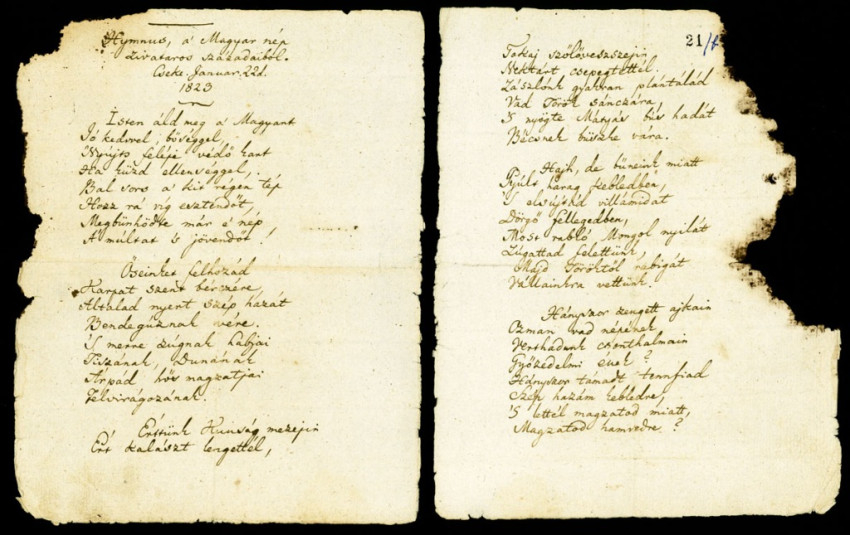 Hymnus, a' Magyar nép
zivataros századaiból.
Cseke Januar. 22d.
1823
Isten áld meg a' Magyart
Jó kedvvel, bőséggel,
Nyújts feléje védő kart
Ha küzd ellenséggel,
Bal sors a' kit régen tép
Hozz rá víg esztendőt,
Megbűnhődte már e' nép
A' múltat 's jövendőt!
Őseinket felhozád
Kárpát szent bérczére,
Általad nyert szép hazát
Bendegúznak vére.
'S merre zúgnak habjai
Tiszának, Dunának
Árpád hős magzatjai
Felvirágozának.
Értünk Kunság mezején
Ért kalászt lengettél,
21/
Tokaj szőlővesszején
Nektárt csepegtettél.
Zászlónk gyakran plántálád
Vad Török sánczára,
'S nyögte Mátyás bús hadát
Bécsnek büszke vára.
Hajh, de bűneink miatt
Gyúlt harag kebledben,
'S elsújtád villámidat
Dörgő fellegedben,
Most rabló Mongol nyilát
Zúgattad felettünk,
Majd Töröktől rabigát
Vállainkra vettünk.
Hányszor zengett ajkain
Ozman vad népének
Vert hadunk csonthalmain
Győzedelmi ének?
Hányszor támadt tennfiad
Szép hazám kebledre,
'S lettél magzatod miatt,
Magzatod hamvedre?